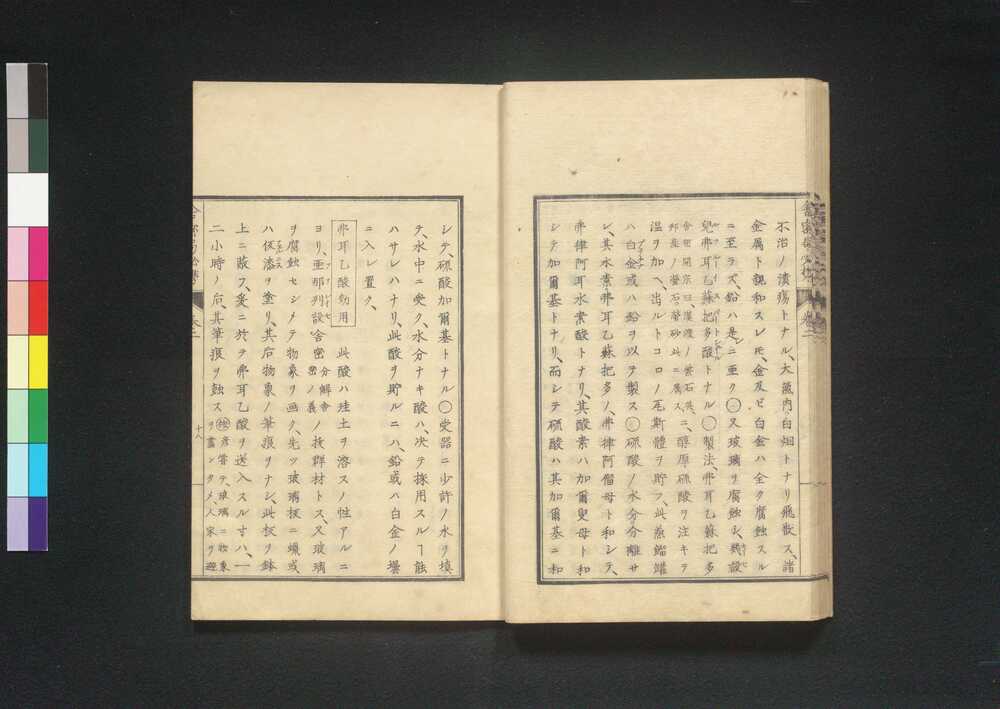 不治ノ潰瘍トナル、大氣内白烟トナリ飛散ス、諸
金属ト親和スレ𪜈、金及ビ白金ハ全ク腐蝕スル
ニ至ラズ、鉛ハ是ニ亜ク〇又玻璃ヲ腐蝕シ、幾設
兒弗耳乙蘇把多酸トナル〇製法、弗耳乙蘇把多
舎密開宗曰、漢渡ノ螢石英、
邦産ノ螢石ノ螢砂此ニ属ス、
ニ、醇厚硫酸ヲ注キテ
温ヲ加ヘ、出ルトコロノ瓦斯體ヲ貯フ、此蒸餾罐
ハ白金或ハ鉛ヲ以テ製ス〇硫酸ノ水分分離サ
レ、其水素弗耳乙蘇把多ノ、弗律阿留母ト和シテ、
弗律阿耳水素酸トナリ、其酸素ハ加爾叟母ト和
シテ加爾基トナリ、而シテ硫酸ハ其加爾基ニ和
シテ、硫酸加爾基トナル〇受器ニ少許ノ水ヲ填
テ、水中ニ受ク、水分ナキ酸ハ、决テ採用スルヿ能
ハサレハナリ、此酸ヲ貯ルニハ、鉛或ハ白金ノ壜
ニ入レ置ク、
弗耳乙酸効用
此酸ハ珪土ヲ溶スノ性アルニ
ヨリ、亜那列設
分解舎
密ノ義
ノ扶群材トス、又玻璃
ヲ腐蝕セシメテ物象ヲ画ク、先ツ玻璃板ニ蠟或
ハ仮漆ヲ塗リ、其后物象ノ筆痕ヲナシ、此板ヲ鉢
上ニ蔽フ、爰ニ於テ弗耳乙酸ヲ送入スル寸ハ、一
二小時ノ后、其筆痕ヲ蝕ス
彦嘗テ、玻璃ニ物象
ヲ畫ンタメ、人家ヲ避
十八